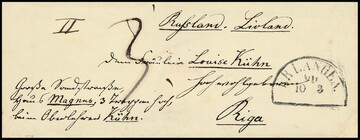 II
Rußland. Livland.
3
Dem Fräulein Louise Kühn
Hochwohlgeboren
ERLANGEN.
10 3
Große Sandstraße,
Haus Magnus, 3 Treppen hoch
beim Oberlehrer Kühn.
Riga